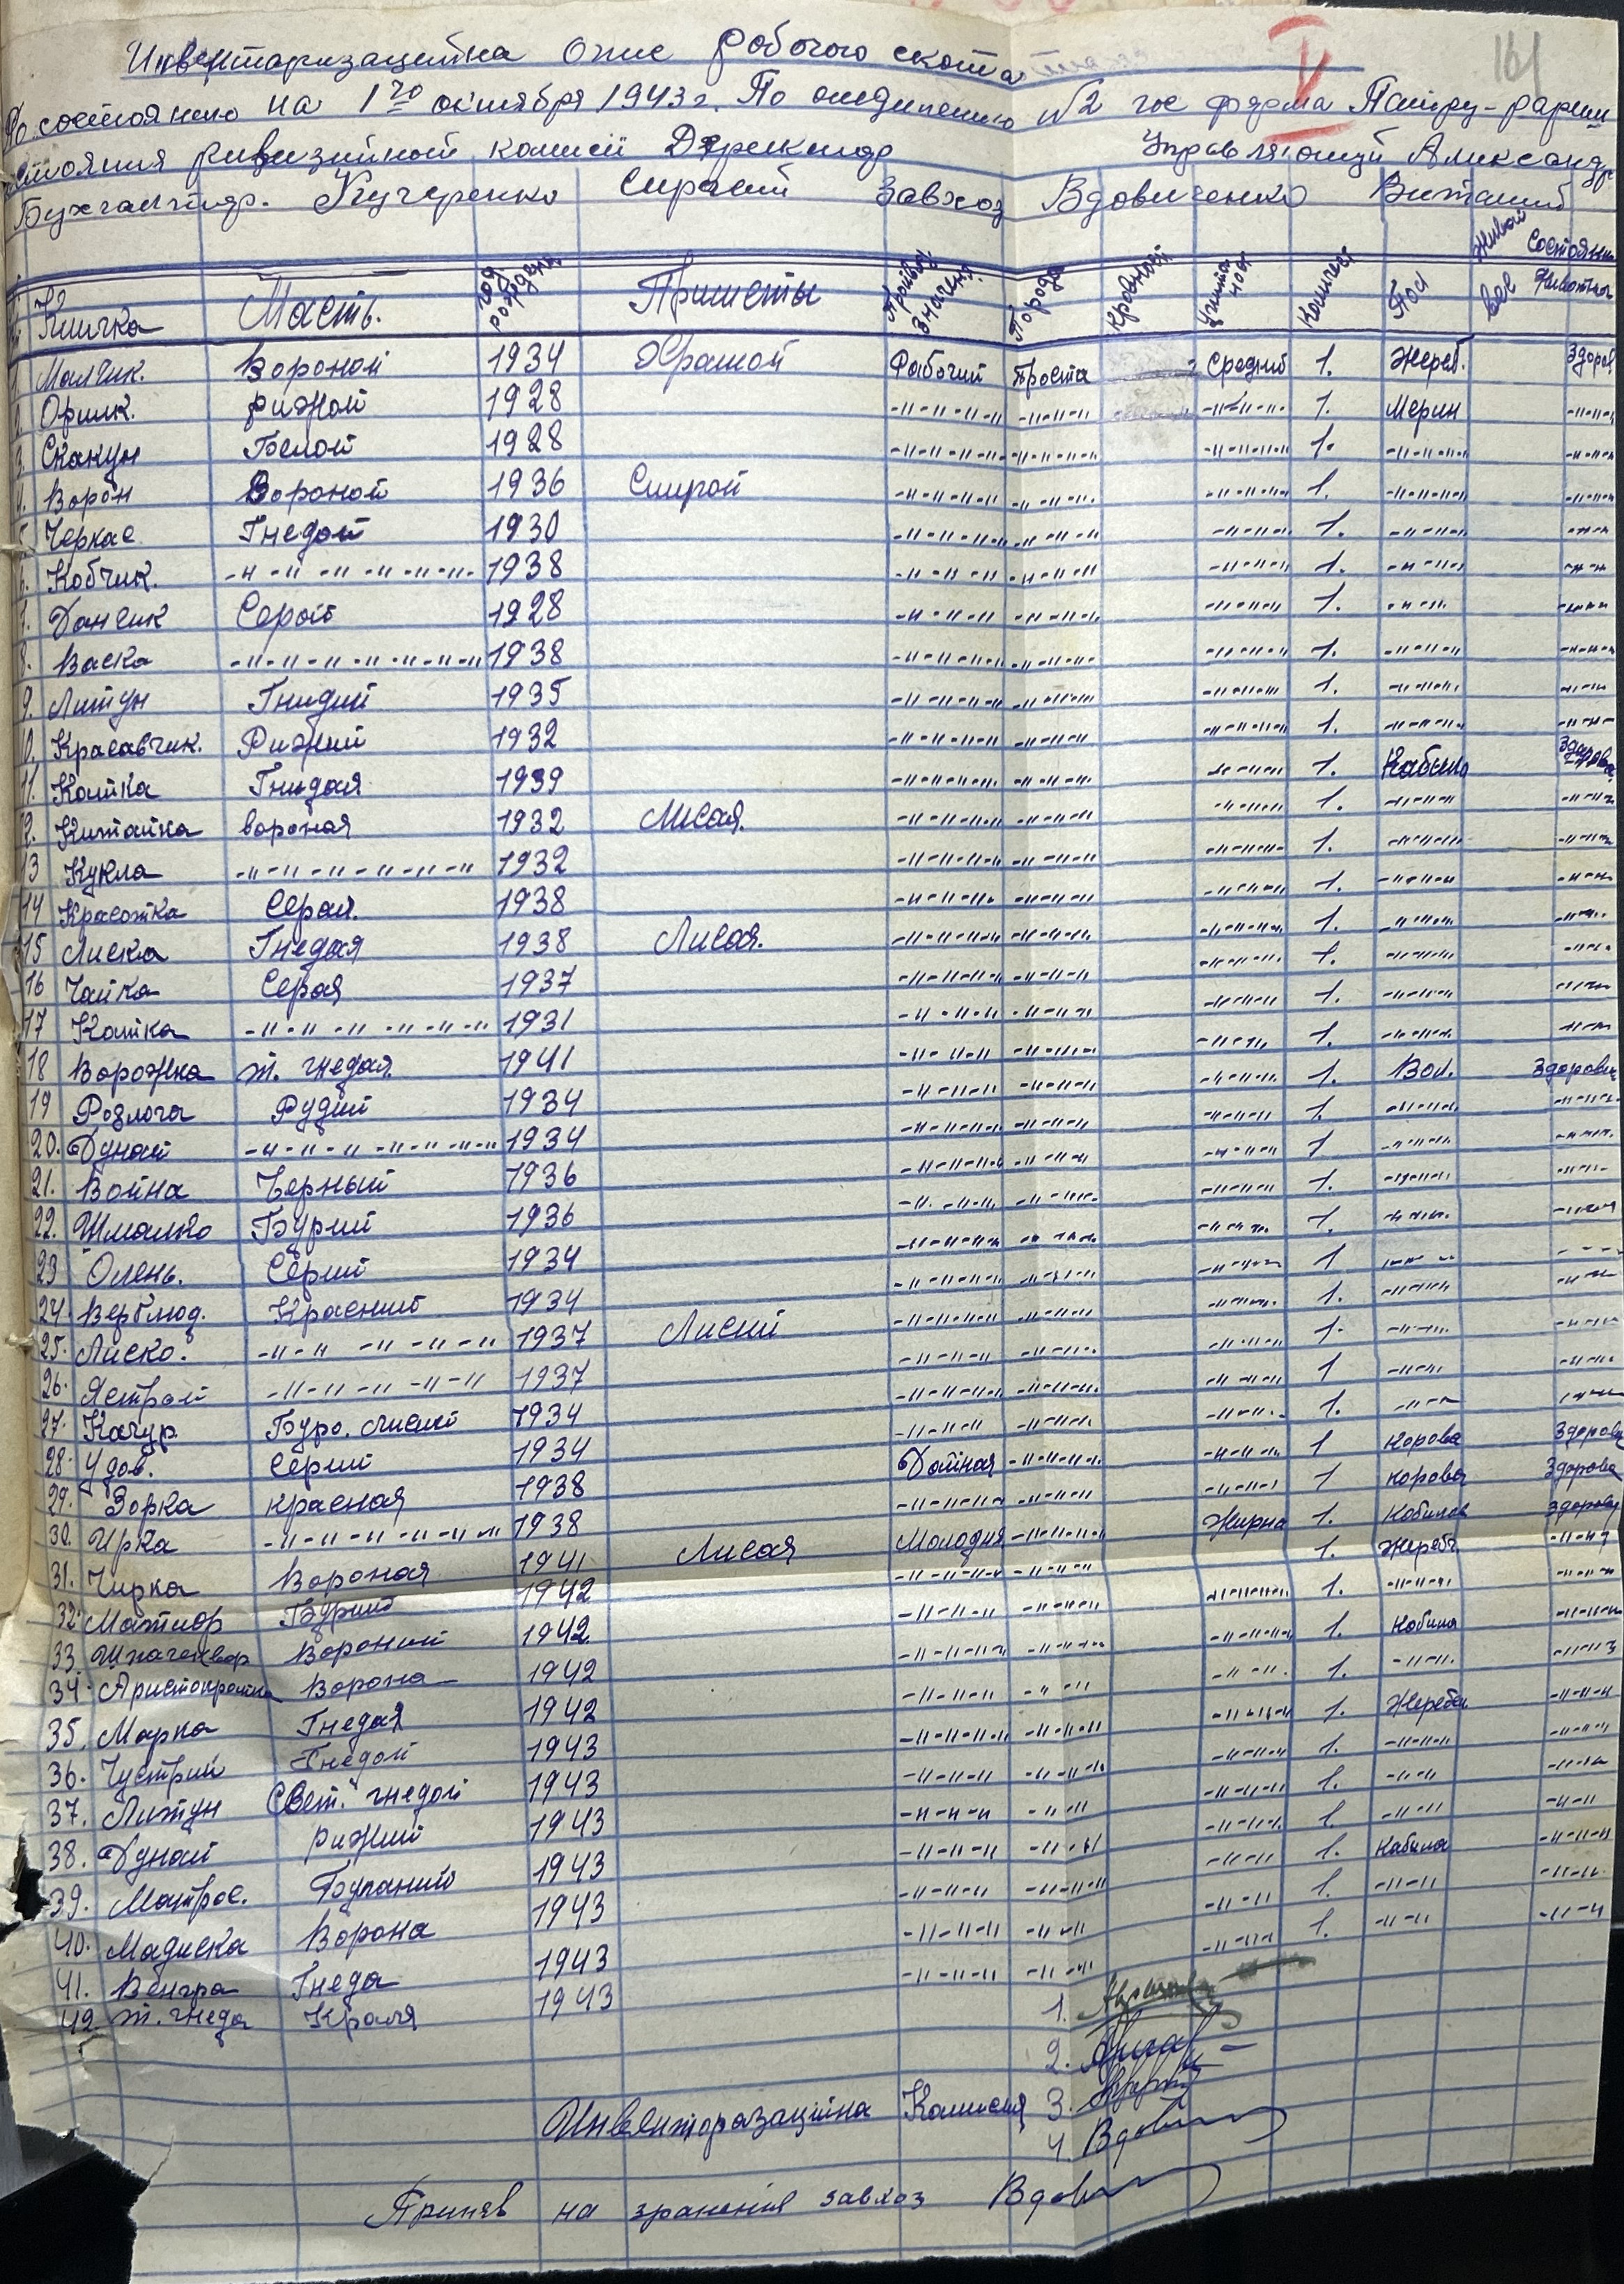 161
V
Инвентаризацийна опис робочого скота
По состоянию на 1го октября 1943 г. По отделению №2 гос
ревизийной комисии Директор Управляющий Александр
Бухгалтер. Кучеренко Сиргей Завхоз Вдовиченко Виталий
Кличка Масть. год рожден. Приметы Производ. значен. Порода Кровност Упитаность Количест Пол Живой вес Состояние животна
1. Малчик. Вороной 1934 Храмой Рабочий Проста Средний 1. Жереб. Здоров
2. Орлик. рижой 1928 -"-"-"- -"-"- -"-"- 1. Мерин -"-"-
3. Скакун Белой 1928 -"-"-"- -"-"- -"-"- 1. -"-"- -"-"-
4. Ворон Вороной 1936 -"-"-"- -"-"- -"-"- 1. -"-"- -"-"-
5. Черкас Гнедой 1930 -"-"-"- -"-"- -"-"- 1. -"-"- -"-"-
6. Кобчик. -"-"-"- 1938 -"-"-"- -"-"- -"-"- 1. -"-"- -"-"-
7. Данчик Серой 1928 -"-"-"- -"-"- -"-"- 1. -"-"- -"-"-
8. Васка -"-"-"- 1938 -"-"-"- -"-"- -"-"- 1. -"-"- -"-"-
9. Литун Гнидий 1935 -"-"-"- -"-"- -"-"- 1. -"-"- -"-"-
10. Красавчик. Рижий 1932 -"-"-"- -"-"- -"-"- 1. -"-"- -"-"-
11. Катка Гнидая 1939 -"-"-"- -"-"- -"-"- 1. Кабыла Здорова
12. Китайка вороная 1932 Лисая. -"-"-"- -"-"- -"-"- 1. -"-"- -"-"-
13 Кукла -"-"-"- 1932 -"-"-"- -"-"- -"-"- 1. -"-"- -"-"-
14 Красотка Серая. 1938 -"-"-"- -"-"- -"-"- 1. -"-"- -"-"-
15 Лиска Гнедая 1938 Лисая. -"-"-"- -"-"- -"-"- 1. -"-"- -"-"-
16 Чайка Серая 1937 -"-"-"- -"-"- -"-"- 1. -"-"- -"-"-
17 Катка -"-"-"- 1931 -"-"-"- -"-"- -"-"- 1. -"-"- -"-"-
18 Ворожка т. гнедая. 1941 -"-"-"- -"-"- -"-"- 1. -"-"- -"-"-
19 Розлога Рудий 1934 -"-"-"- -"-"- -"-"- 1. Вол. Здоровы
20. Дунай -"-"-"- 1934 -"-"-"- -"-"- -"-"- 1. -"-"- -"-"-
21. Война Черный 1936 -"-"-"- -"-"- -"-"- 1 -"-"- -"-"-
22. Шмалко Бурий 1936 -"-"-"- -"-"- -"-"- 1. -"-"- -"-"-
23 Олень. Серий 1934 -"-"-"- -"-"- -"-"- 1. -"-"- -"-"-
24. Верблюд. Красний 1934 -"-"-"- -"-"- -"-"- 1 -"-"- -"-"-
25. Лиско. -"-"-"- 1937 Лисий -"-"-"- -"-"- -"-"- 1. -"-"- -"-"-
26. -"-"-"- 1937 -"-"-"- -"-"- -"-"- 1. -"-"- -"-"-
27. Качур Буро. лисий 1934 -"-"-"- -"-"- -"-"- 1 -"-"- -"-"-
28. Удов. Серий 1934 -"-"-"- -"-"- -"-"- 1. -"-"- -"-"-
29. Зорка красная 1938 Дойная -"-"- -"-"- 1 Корова Здорова
30. Ирка -"-"-"- 1938 -"-"-"- -"-"- -"-"- 1 корова Здорова
31. Чирка Вороная 1941 Лисая Молодня -"-"- Жирна 1. Кобила Здорова
32. Бурий 1942 -"-"-"- -"-"- 1. Жереб. -"-"-
33. Вороний 1942. -"-"-"- -"-"- -"-"- 1. -"-"- -"-"-
34. Аристократка Ворона 1942 -"-"-"- -"-"- -"-"- 1. Кобила -"-"-
35. Марка Гнедая 1942 -"-"-"- -"-"- -"-"- 1. -"-"- -"-"-
36. Чустрий Гнедой 1943 -"-"-"- -"-"- -"-"- 1. Жеребец -"-"-
37. Литун Свет. гнедой 1943 -"-"-"- -"-"- -"-"- 1. -"-"- -"-"-
38. Дунай рижий 1943 -"-"-"- -"-"- -"-"- 1. -"-"- -"-"-
39. Матрос. Буланий 1943 -"-"-"- -"-"- -"-"- 1. -"-"- -"-"-
40. Мадиска Ворона 1943 -"-"-"- -"-"- -"-"- 1. Кабила -"-"-
41. Венгра Гнеда 1943 -"-"-"- -"-"- -"-"- 1. -"-"- -"-"-
42. т. гнеда Краля 1943 -"-"-"- -"-"- -"-"- 1. -"-"- -"-"-
1.
2.
Инвентаризацийна Комисия 3.
4. Вдов
Приняв на зранения завхоз Вдов